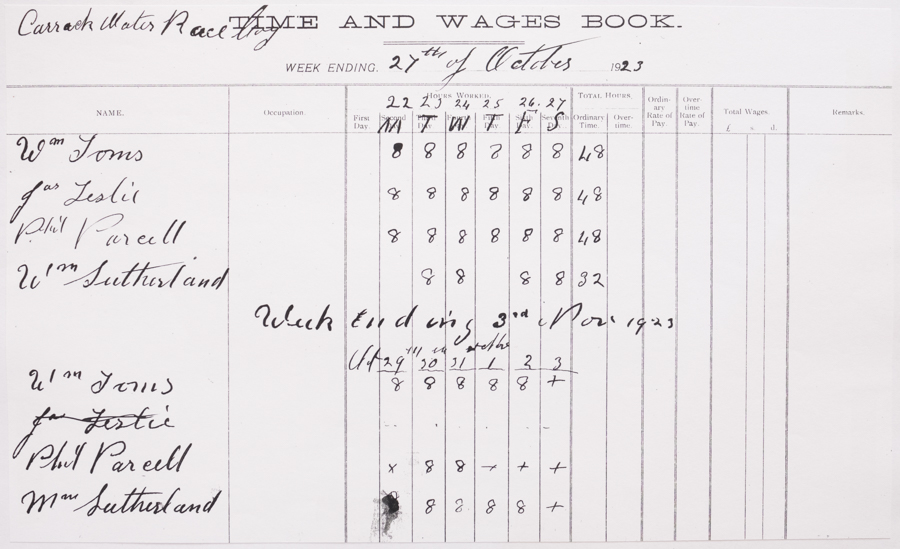 Carrack Water Race Coy
TIME AND WAGES BOOK.
WEEK ENDING, 27th of October 1923
NAME. Occupation. HOURS WORKED. TOTAL HOURS. Ordinary Rate of Pay. Overtime Rate of Pay. Total Wages £ s. d. Remarks.
22 23 24 25 26. 27
First Day. Second M T W T F S Ordinary Time. Overtime.
Wm Toms 8 8 8 8 8 8 48
Jas Leslie 8 8 8 8 8 8 48
Phil Parcell 8 8 8 8 8 8 48
Wm Sutherland 8 8 8 8 32
Week Ending 3rd Nov 1923
29th 30 31 1 2 3
Wm Toms 8 8 8 8 8 +
Jas Leslie
Phil Parcell x 8 8 + + +
Wm Sutherland 8 8 8 8 8 +